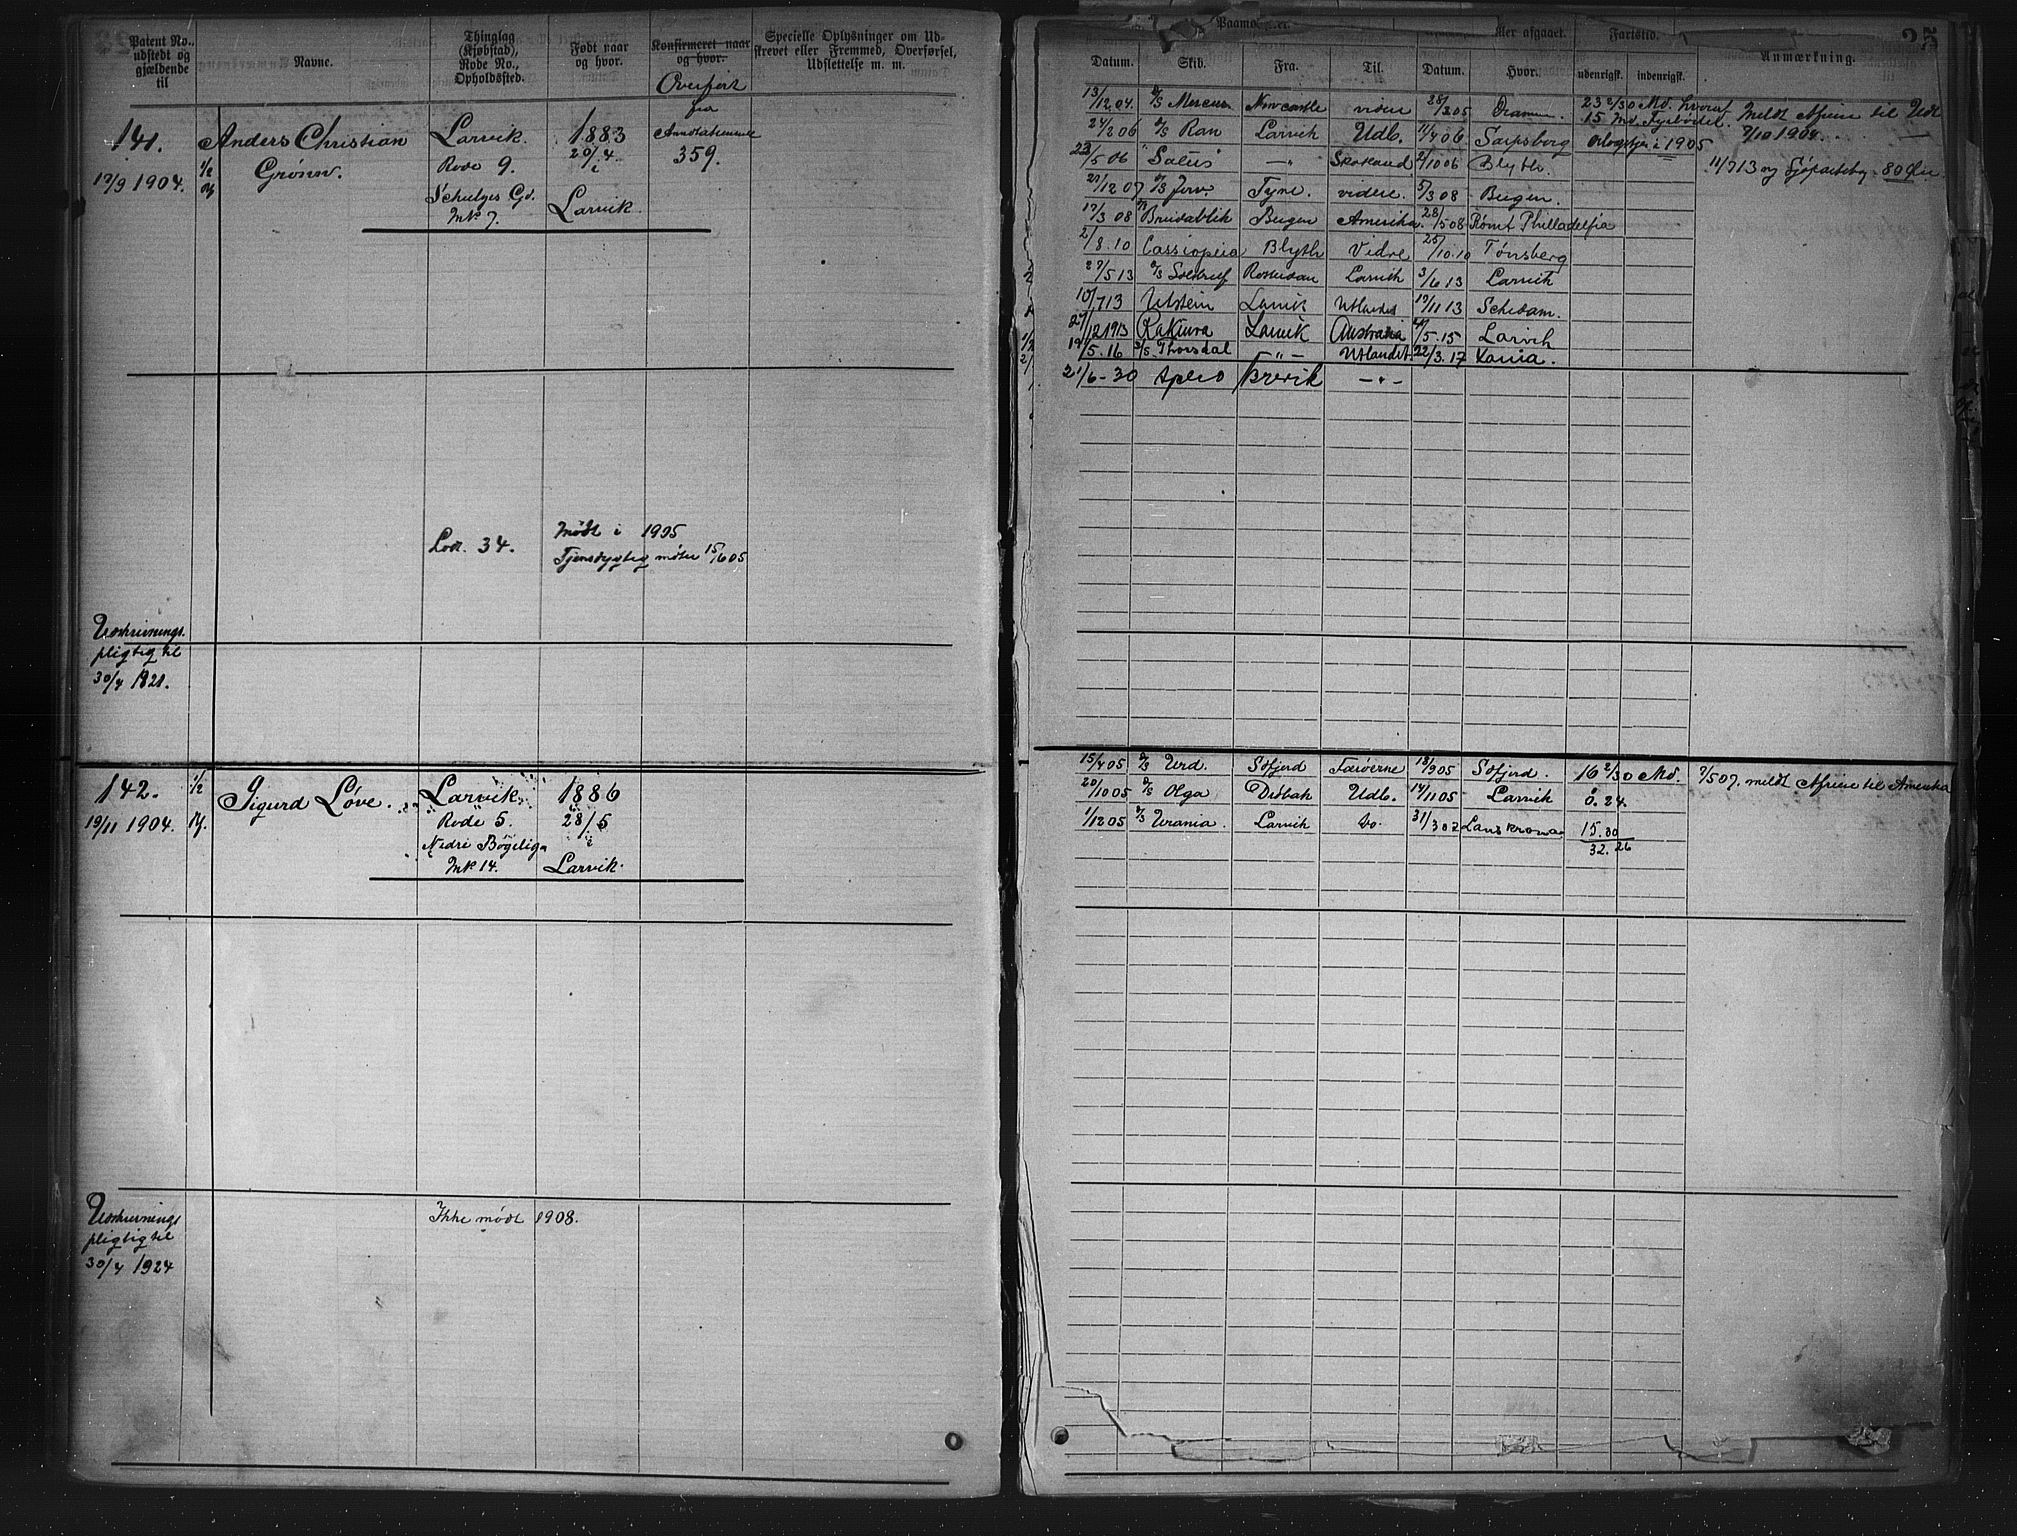 Patent No., udstedt og gjældende til
Navne.
Thinglag (Kjøbstad), Rode No., Opholdssted.
Født naar og hvor.
Konfirmeret naar og hvor.
Overført fra
Specielle Oplysninger om Udskrevet eller Fremmed, Overførsel, Udslettelse m. m.
141.
19/9 1904.
1/2
Anders Christian
Grønn.
Larvik.
Rode 9.
Schultzes Gd.
Mk 7.
1883
20/4
i
Larvik.
359.
Lod. 34.
Mødt i 1905
Tjenstdygtig møter 15/6 05
Udskrivnings
pligtig til
30/4 1921.
142.
19/11 1904.
1/2
Sigurd Løve.
Larvik.
Rode 5.
Nedre Bøgeliga
Mk 14.
1886
28/5
i
Larvik.
Ikke mødt 1908.
Udskrivnings
pligtig til
30/4 1924
25
Datum.
Skib.
Fra.
Til.
Datum.
Hvor.
Fartstid.
udenrigsk.
indenrigsk.
Anmærkning.
Her afgaaet.
13/12.04. D/S Mercur Newcastle videre 28/3 05 Drammen. 23 2/30 Md. hvoraf Meldt Afreise til Udl
15 Md. Fyrbøder. 7/10 1904.
24/2 06 D/S Ran Larvik Udl. 11/4 06 Sarpsborg Orlogstj. i 1905
23/5 06 "Salus" —"— Skotland 2/10 06 Blyth. 11/7 13 ny Sjøfartsbog 80 Øre
21/12 07 D/S Jerv. Tyne. videre. 5/3 08 Bergen.
17/3 08 Breidablik Bergen Amerika. 28/5 08 Rømt Philladelfia
2/8.10 Cassiopeia Blyth Vidre 25/10.10 Tønsberg
27/5 13 Rotterdam Larvik 3/6 13 Larvik
10/7 13 Utstein Larvik Utlandet 19/11 13 Schedam.
27/12 1913 Rakiura Larvik Australia 5.15 Larvik
19/5.16 D/S Thorsdal —"— Utlandet. 22/3.17 Xania.
21/6-30 Spero Brevik —"—
15/4 05 D/S Urd. Sdfjord Færøerne 18/9 05 Sdfjord. 16 2/30 Md. 7/5 07. meldt Afreise til Amerika
20/10 05 D/S Olga Drøbak Udl. 14/11 05 Larvik 0.24.
1/12 05 D/S Urania. Larvik do. 31/3 07 Lanskrona 15.30
32.26